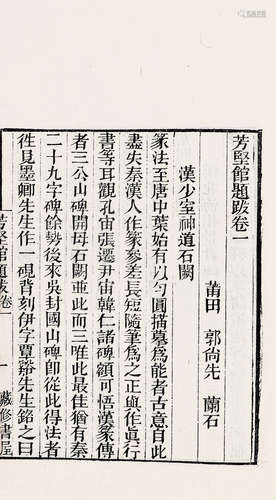 芳堅館題跋卷一
莆田 郭尚先 蘭石
漢少室神道石闕
篆法至唐中葉始有以勻圓描摹為能者古意自此
盡失秦漢人作篆參差長短隨筆為之正與作眞行
書等耳觀孔宙張遷尹宙韓仁諸碑額可悟漢篆傳
者三公山碑開母石闕並此而三唯此最佳猶有秦
二十九字碑餘勢後來吳封國山碑即從此得法者
徃見墨卿先生作一硯背刻伊字覃谿先生銘之曰
芳堅館題跋卷一
一
藏修書屋